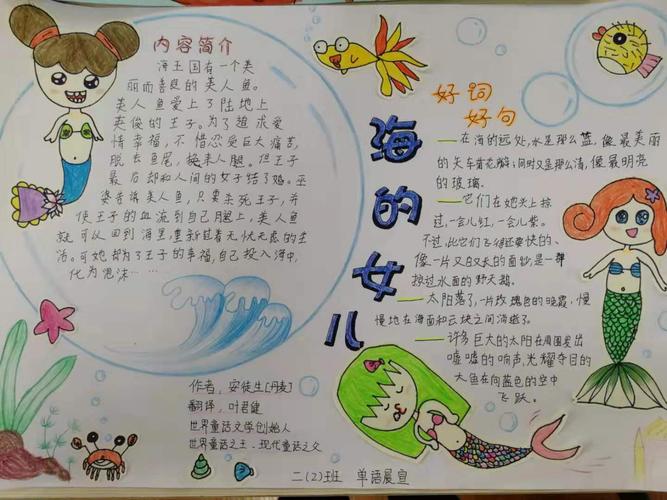 内容简介
海王国有一个美
丽而善良的美人鱼。
美人鱼爱上了陆地上
英俊的王子。为了追求爱
情幸福,不惜忍受巨大痛苦,
脱去鱼尾,换来人腿。但王子
最后却和人间的女子结了婚。巫
婆告诉美人鱼,只要杀死王子,并
使王子的血流到自己腿上,美人鱼
就可以回到海里,重新过着无忧无虑的生
活。可她却为了王子的幸福,自己投入海中,
化为泡沫……
作者:安徒生[丹麦]
翻译:叶君健
世界童话文学创始人
世界童话之王、现代童话之父
海的女儿
好词
好句
在海的远处,水是那么蓝,像最美丽
的矢车菊花瓣;同时又是那么清,像最明亮
的玻璃.
它们在她头上掠
过,一会儿红,一会儿紫。
不过,比它们飞得还要快的、
像一片又白又长的面纱,是一群
掠过水面的野天鹅.
太阳落了,一片玫瑰色的晚霞,慢
慢地在海面和云块之间消逝了。
许多巨大的太阳在周围发出
嘘嘘的响声,光耀夺目的
大鱼在向蓝色的空中
飞跃.
二(2)班 单语晨宣